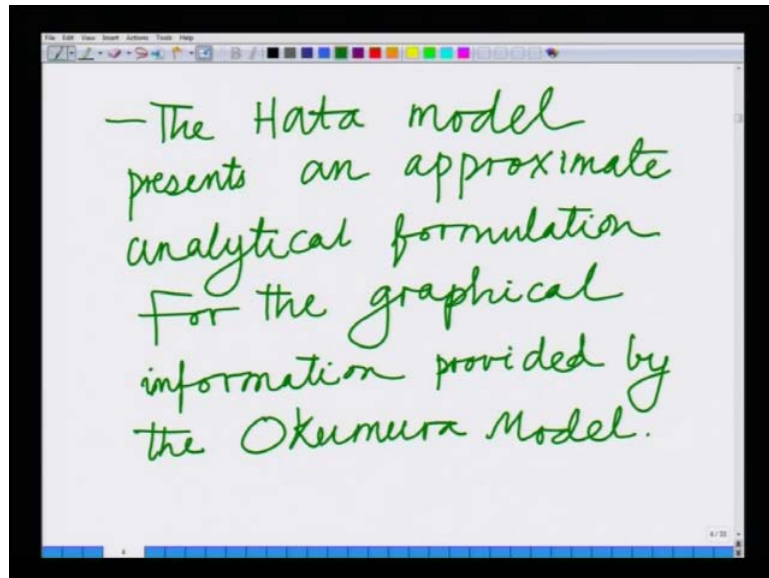 File Edit View Insert Actions Tools Help
— The Hata model
presents an approximate
analytical formulation
For the graphical
information provided by
the Okumura Model.